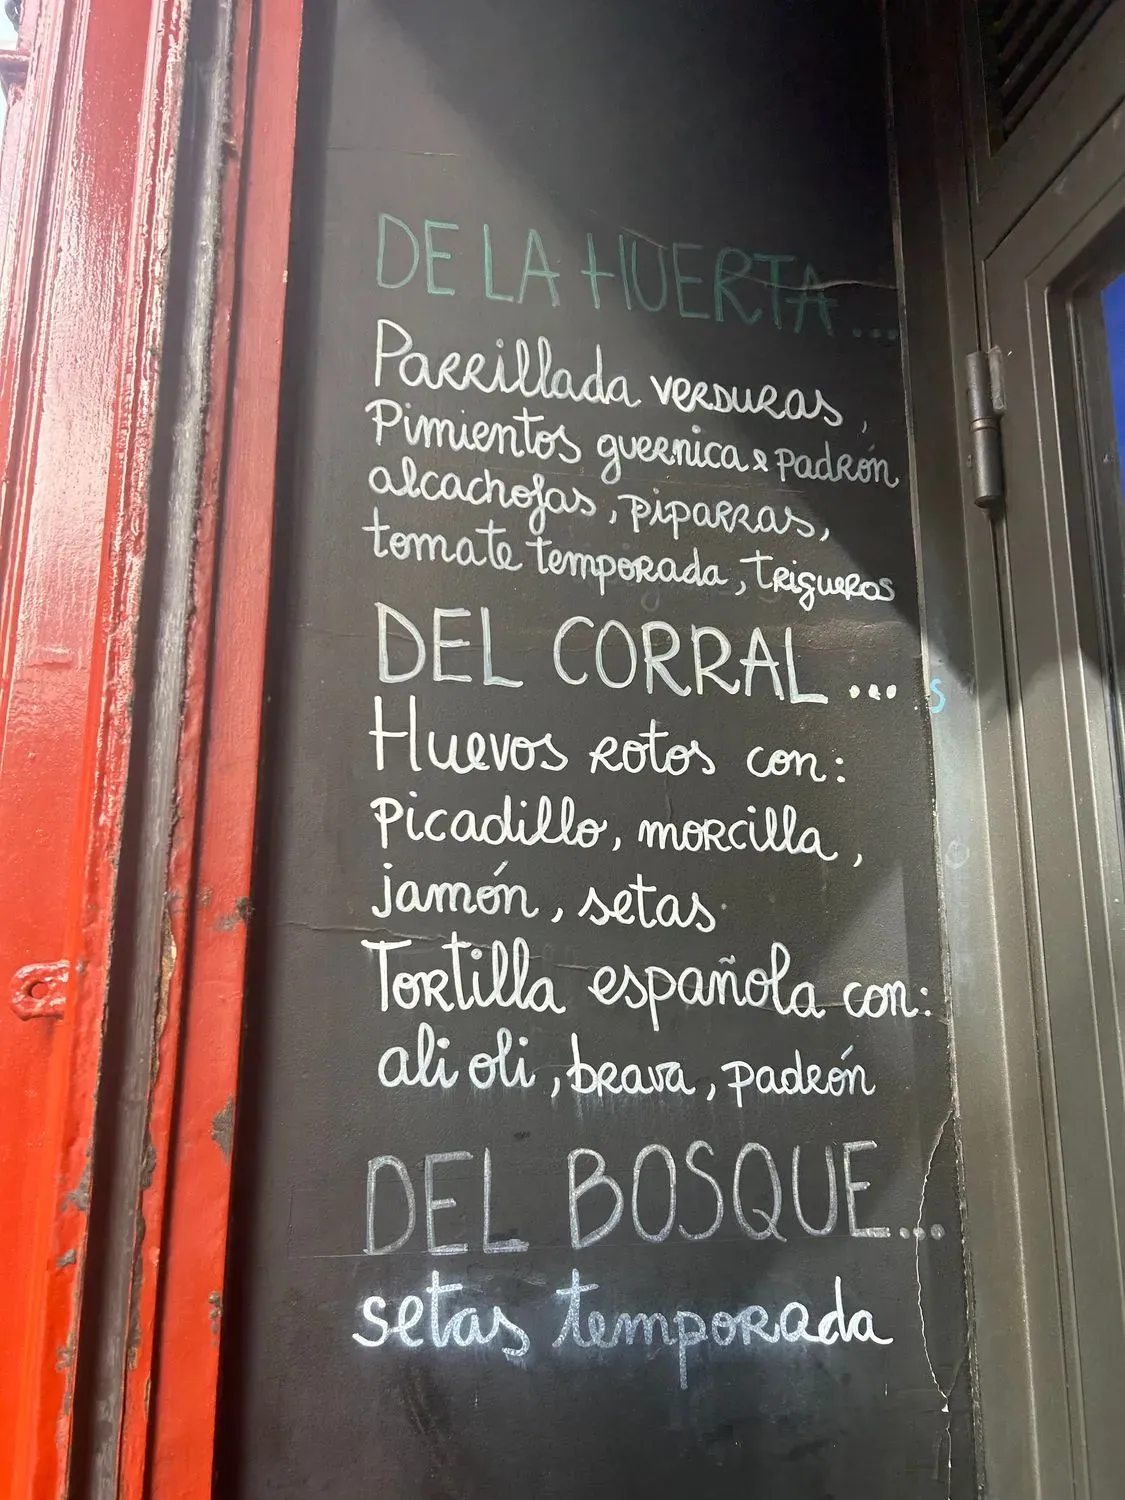 DE LA HUERTA...
Parrillada verduras,
Pimientos guernica & padrón
alcachofas, piparras,
tomate temporada, trigueros
DEL CORRAL...
Huevos rotos con:
Picadillo, morcilla,
jamón, setas
Tortilla española con:
ali oli, brava, padrón
DEL BOSQUE...
setas temporada